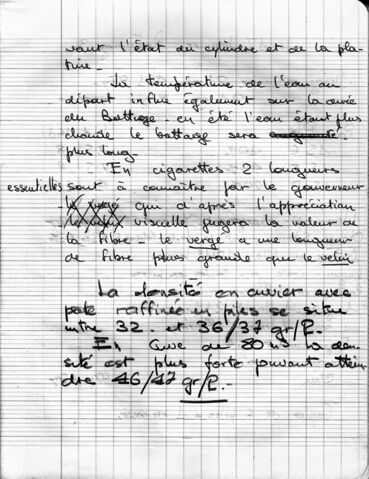 vant l'état du cylindre et de la pla-
tine -
La température de l'eau au
départ influe également sur la durée
du Battage. en été l'eau étant plus
chaude le battage sera
plus long-
En cigarettes 2 longueurs
essentielles sont à connaître par le gouverneur
qui d'après l'appréciation
visuelle jugera la valeur de
la fibre - le vergé a une longueur
de fibre plus grande que le velin
La densité en cuvier avec
pate raffinée en piles se situe
entre 32. et 36/37 gr/l.
En Cuve de 80 m3 la den
sité est plus forte pouvant attein
dre 46/47 gr/l.-